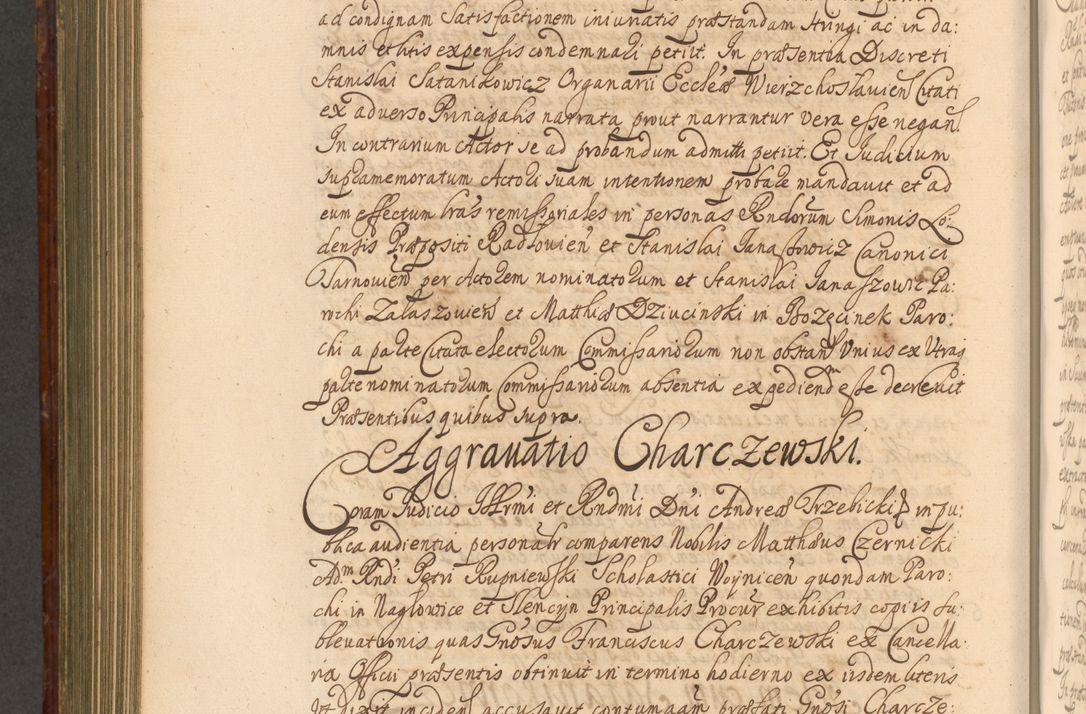 ad condignam satisfactionem iniuriatis præstandam stringi ac in da:
mnis et litis expensis condemnari petiit. In præsentia Discreti
Stanislai Satanikowicz Organarii Ecclæ Wierzchoslavien Citati
ex adverso Principalis narrata prout narrantur vera esse negan
In contrarium Actor se ad probandum admitti petiit. Et Iudicium
supramemoratum Actori suam intentionem probare mandavit et ad
eum effectum lras remissoriales in personas Rndorum Simonis Lo:
densis Præpositi Radlovien et Stanislai Janaszowicz Canonici
Tarnovien per Actorem nominatorum et Stanislai Janaszowic Pa:
rochi Zalaszovien et Matthiæ Dziucinski in Bozęcinek Paro:
chi a parte Citata electorum Commissariorum non obstan Unius ex Utraq
parte nominatorum Commissariorum absentia expediend esse decrevit
Præsentibus quibus supra.
Aggravatio Charczewski.
Coram Iudicio Illrmi et Rndmi Dni Andreæ Trzebicki in pu:
blica audientia personalr comparens Nobilis Matthæus Czernicki
Adm Rndi Petri Rupniewski Scholastici Woynicen quondam Paro:
chi in Naglowice et Slencyn Principalis Procur exhibitis copiis su:
blevationis quas Gnosus Franciscus Charczewski ex Cancella:
ria Officii præsentis obtinuit in termino hodierno ex iisdem literis
accusavit contumaam præfati Gnosi Charcze: